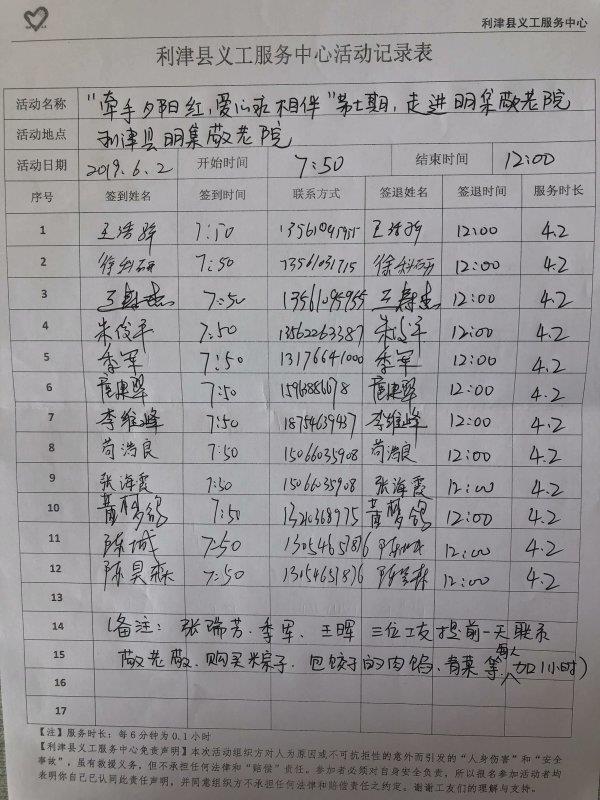 利津县义工服务中心
利津县义工服务中心活动记录表
活动名称 "牵手夕阳红,爱心永相伴"第七期,走进明集敬老院
活动地点 利津县明集敬老院
活动日期 2019.6.2 开始时间 7:50 结束时间 12:00
序号 签到姓名 签到时间 联系方式 签退姓名 签退时间 服务时长
1 7:50 12:00 4.2
2 徐科研 7:50 13561031715 徐科研 12:00 4.2
3 7:50 13561095955 12:00 4.2
4 朱俊平 7:50 13562263387 12:00 4.2
5 季军 7:50 13176641000 季军 12:00 4.2
6 7:50 12:00 4.2
7 李维峰 7:50 18754639437 李维峰 12:00 4.2
8 苟浩良 7:50 15066035908 苟浩良 12:00 4.2
9 张海霞 7:50 15066035908 张海霞 12:00 4.2
10 7:50 12:00 4.2
11 陈城 7:50 13054651876 陈城 12:00 4.2
12 陈昊森 7:50 13054651876 12:00 4.2
13
14 (备注:张瑞芳、季军、王晖 三位工友提前一天联系
15 敬老院、购买米粽子、包饺子的肉馅、青菜等,每人加1小时)
16
17
【注】服务时长:每6分钟为0.1小时
【利津县义工服务中心免责声明】本次活动组织方对人为原因或不可抗拒性的意外而引发的"人身伤害"和"安全
事故",虽有救援义务,但不承担任何法律和"赔偿"责任。参加者必须对自身安全负责,所以报名参加活动者均
表明你自己已认同此责任声明,并同意组织方不承担任何法律和赔偿责任之约定。谢谢工友们的理解与支持。